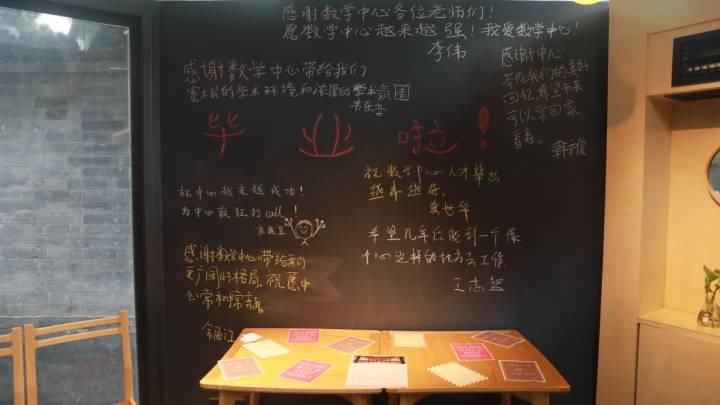 感谢数学中心各位老师们！
愿数学中心越来越强！我爱数学中心！
李伟
感谢数学中心带给我们
宽松的学术环境和浓厚的学术氛围
感谢中心
带给我们的美好
回忆，希望未来
可以常回家
看看。
毕业啦！
祝中心越来越成功！
为中心疯狂打call！
祝数学中心人才辈出
越来越好。
希望几年后能到一个像
中心这样的地方去工作
王志超
感谢数学中心带给我的
更广阔的格局。祝愿中
心常树常新。